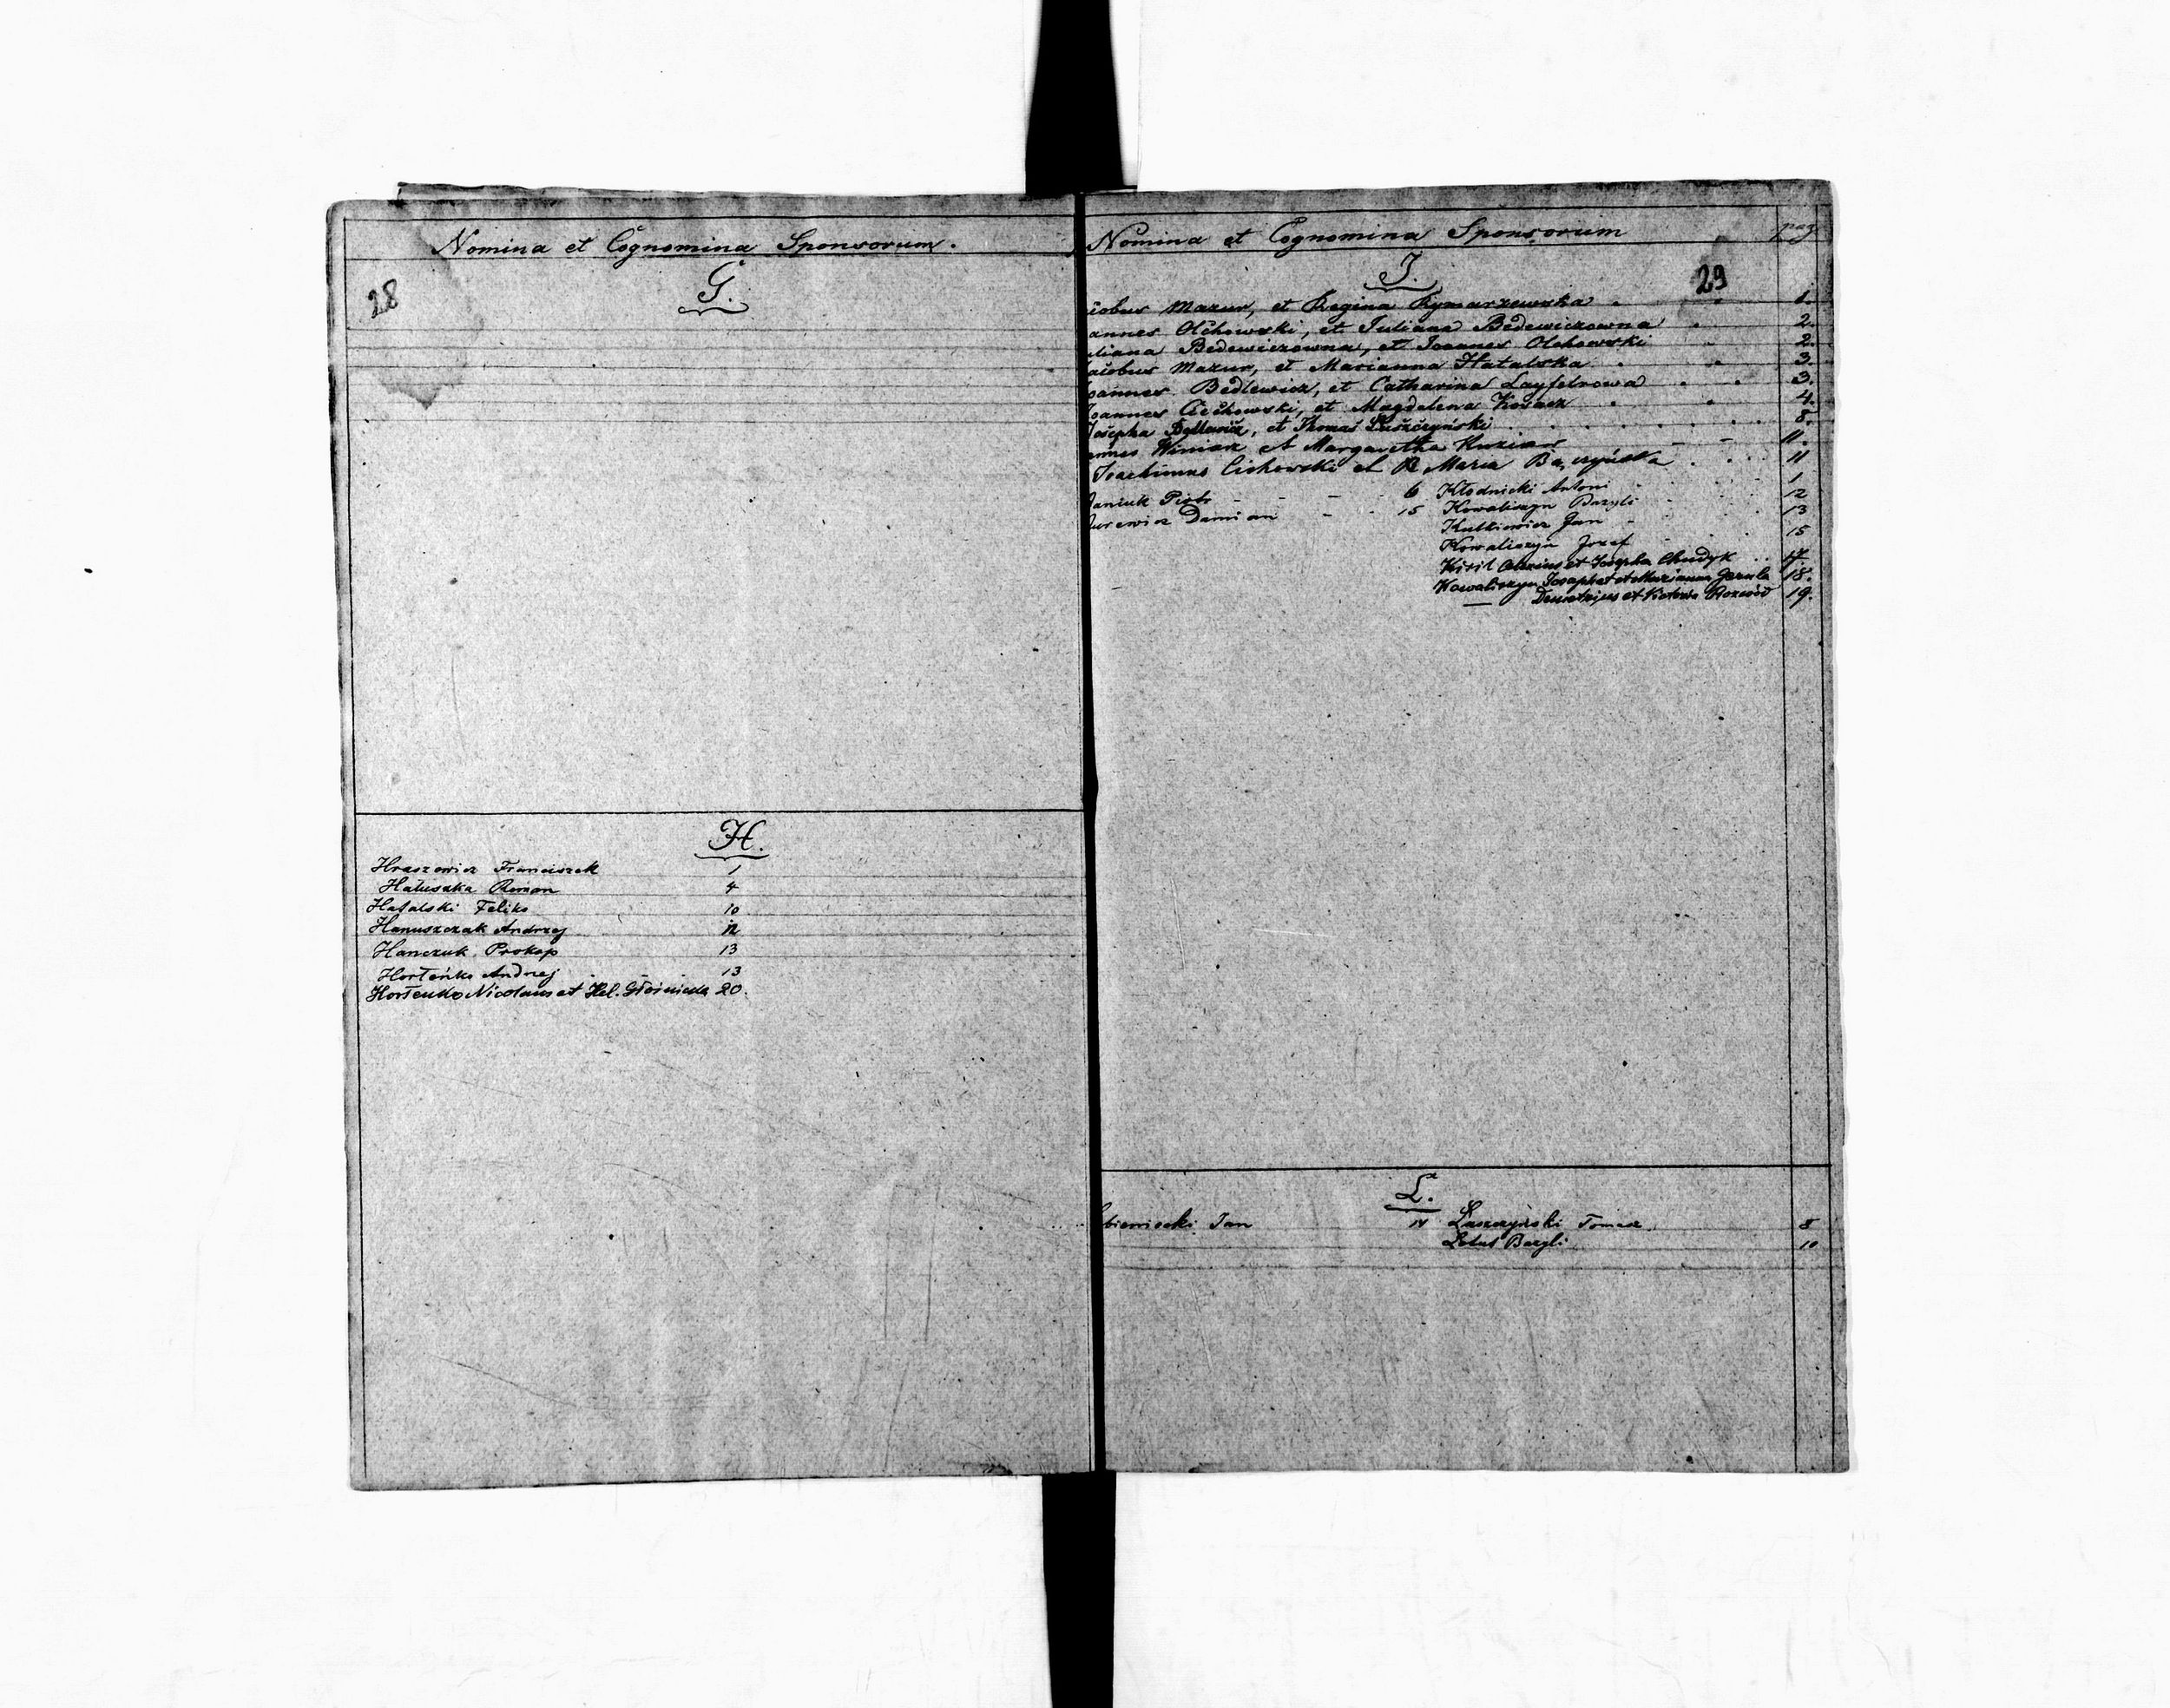 Nomina et Cognomina Sponsorum.
28
G.
H.
Hraszewicz Franciszek 1
Hałuszka Roman 4
Hatalski Feliks 10
Hanuszczak Andrzej 12
Hanczuk Prokop 13
Horteńko Andrzej 13
Hortenko Nicolaus et Hel. 20.
Nomina et Cognomina Sponsorum pag
29
I.
acobus Mazur, et Regina Rymarzewska 1.
oannes Olchowski, et Juliana Bedewiczowna 2.
uliana Bedewiczowna, et Joannes Olchowski 2.
Jacobus Mazur, et Marianna Hatalska 3.
Joannes Bedlewicz, et Catharina Layfelrowa 3.
Joannes Cichowski, et Magdalena Kozacz 4.
Josepha Bedlewicz, et Thomas Łuszczyński 8.
annes Winiar et Margaretha Kuzian 11.
Joachimus Cichowski et Maria 11
Janiuk Piotr 6 Kłodnicki Antoni 1
Jurewicz Damian 15 Kowaliszyn Bazyli 12
Kulkiewicz Jan 13
Kowaliszyn Józef 15
et Josepha Chudyk 17
Kowaliszyn Josaphat et Marianna 18.
— Demetrius et Victoria 19.
L.
Jan Tomasz 8
Bazyli 10